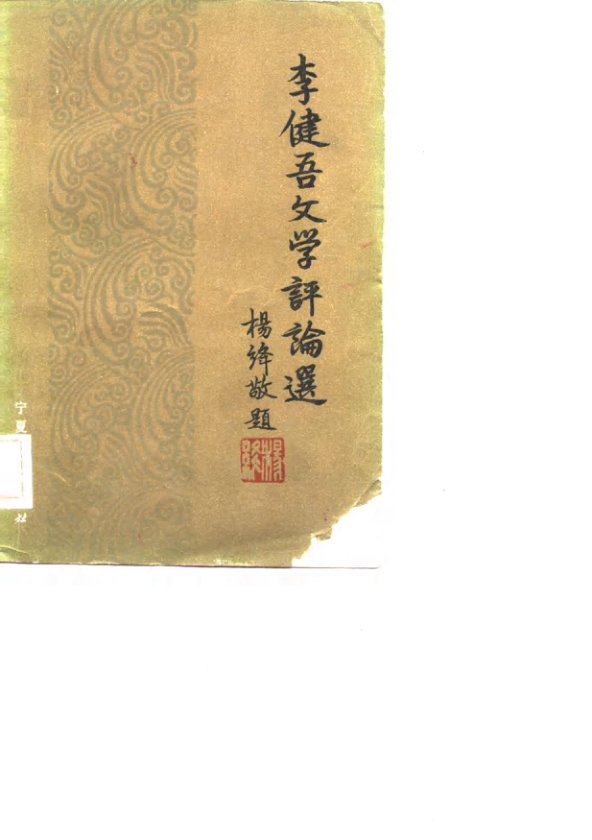 李健吾文学評論選
楊绛敬題
宁夏
社